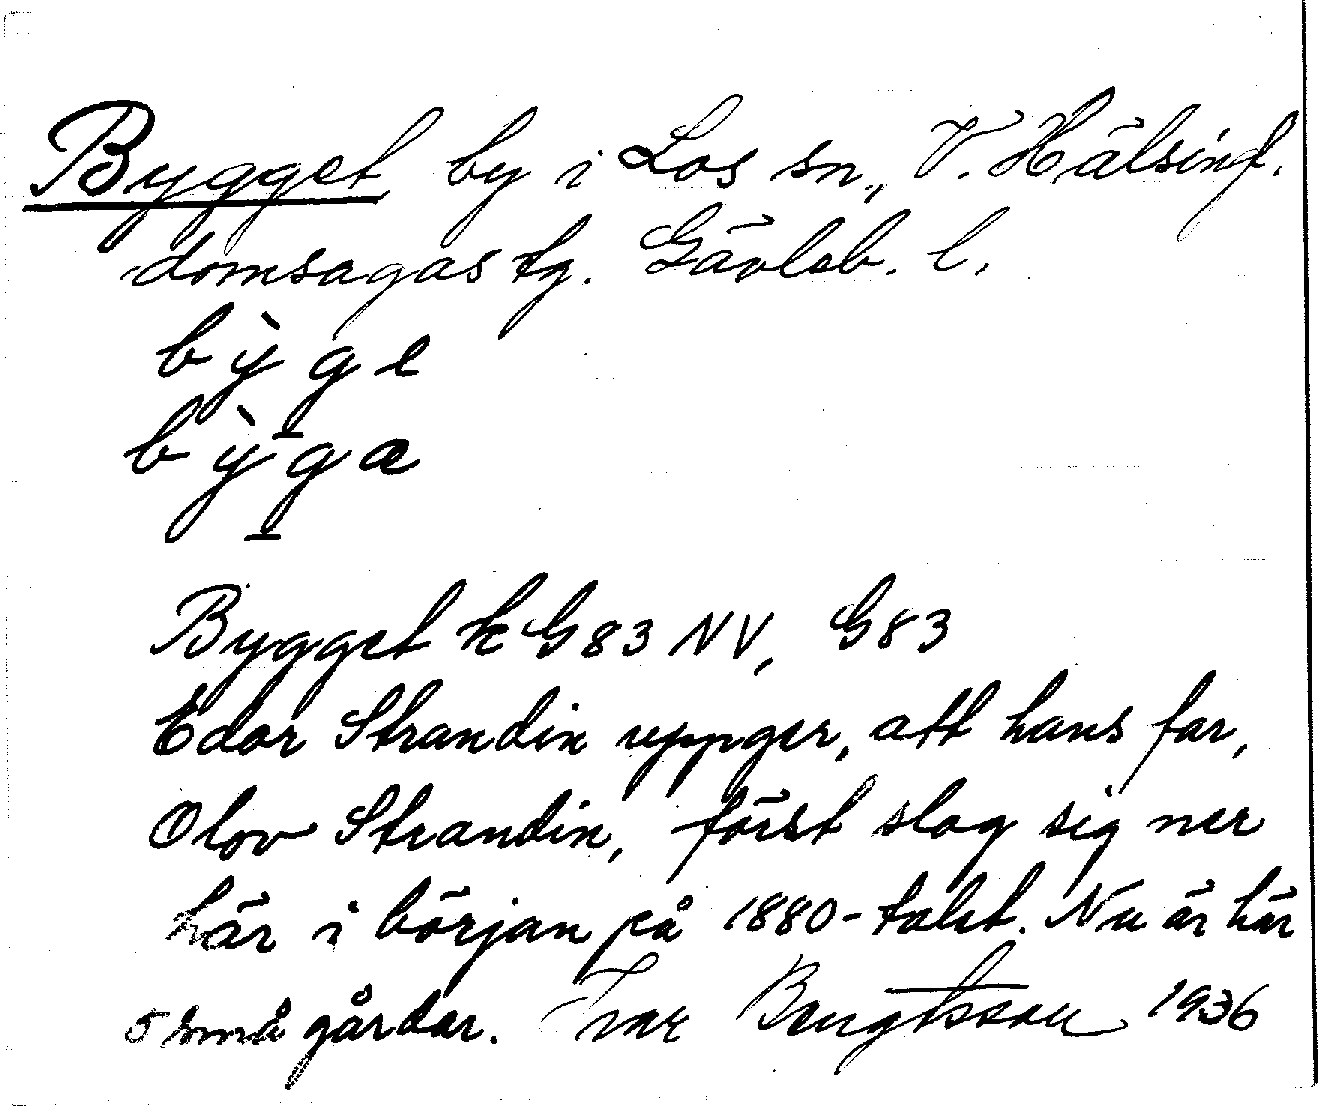 Bygget, by i Los sn., V. Hälsingl.
domsagas tg. Gävleb. l.
bỳg̱e
bỳg̱a
Bygget k G83 NV, G83
Edor Strandin uppger, att hans far,
Olov Strandin, först slog sig ner
här i början på 1880-talet. Nu är här
5 små gårdar. Ivar Bengtsson 1936